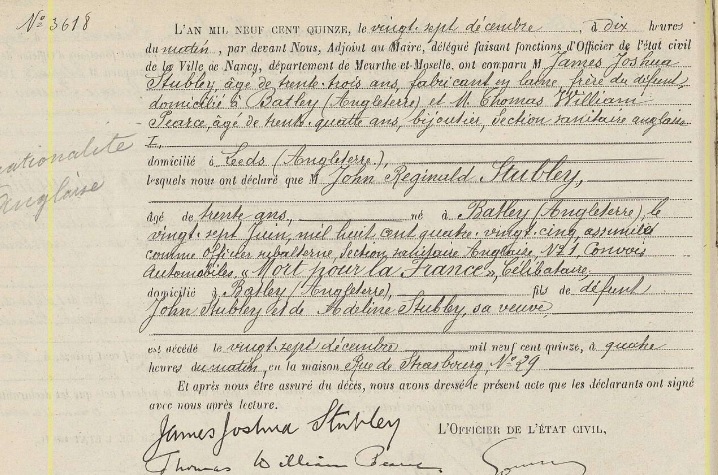 No 3618
L'AN MIL NEUF CENT QUINZE, le vingt-sept décembre, à dix heures
du matin, par devant Nous, Adjoint au Maire, délégué faisant fonctions d'Officier de l'état civil
de la Ville de Nancy, département de Meurthe-et-Moselle, ont comparu M. James Joshua
Stubley, âgé de trente-trois ans, fabricant en laine, frère du défunt,
domicilié à Batley (Angleterre) et M. Thomas William
Pearce, âgé de trente-quatre ans, bijoutier, section sanitaire anglaise
domicilié à Leeds (Angleterre),
lesquels nous ont déclaré que M John Reginald Stubley,
nationalité
anglaise
âgé de trente ans, né à Batley (Angleterre), le
vingt-sept Juin, mil huit cent quatre-vingt-cinq, assimilé
comme Officier subalterne, Section sanitaire Anglaise, No 1, Convois
Automobiles, "Mort pour la France", Célibataire,
domicilié à Batley (Angleterre), fils de défunt
John Stubley et de Adeline Stubley, sa veuve
est décédé le vingt-sept décembre mil neuf cent quinze, à quatre
heures du matin, en la maison Rue de Strasbourg, No 29
Et après nous être assuré du décès, nous avons dressé le présent acte que les déclarants ont signé
avec nous après lecture.
James Joshua Stubley
L'OFFICIER DE L'ÉTAT CIVIL,
Thomas William Pearce